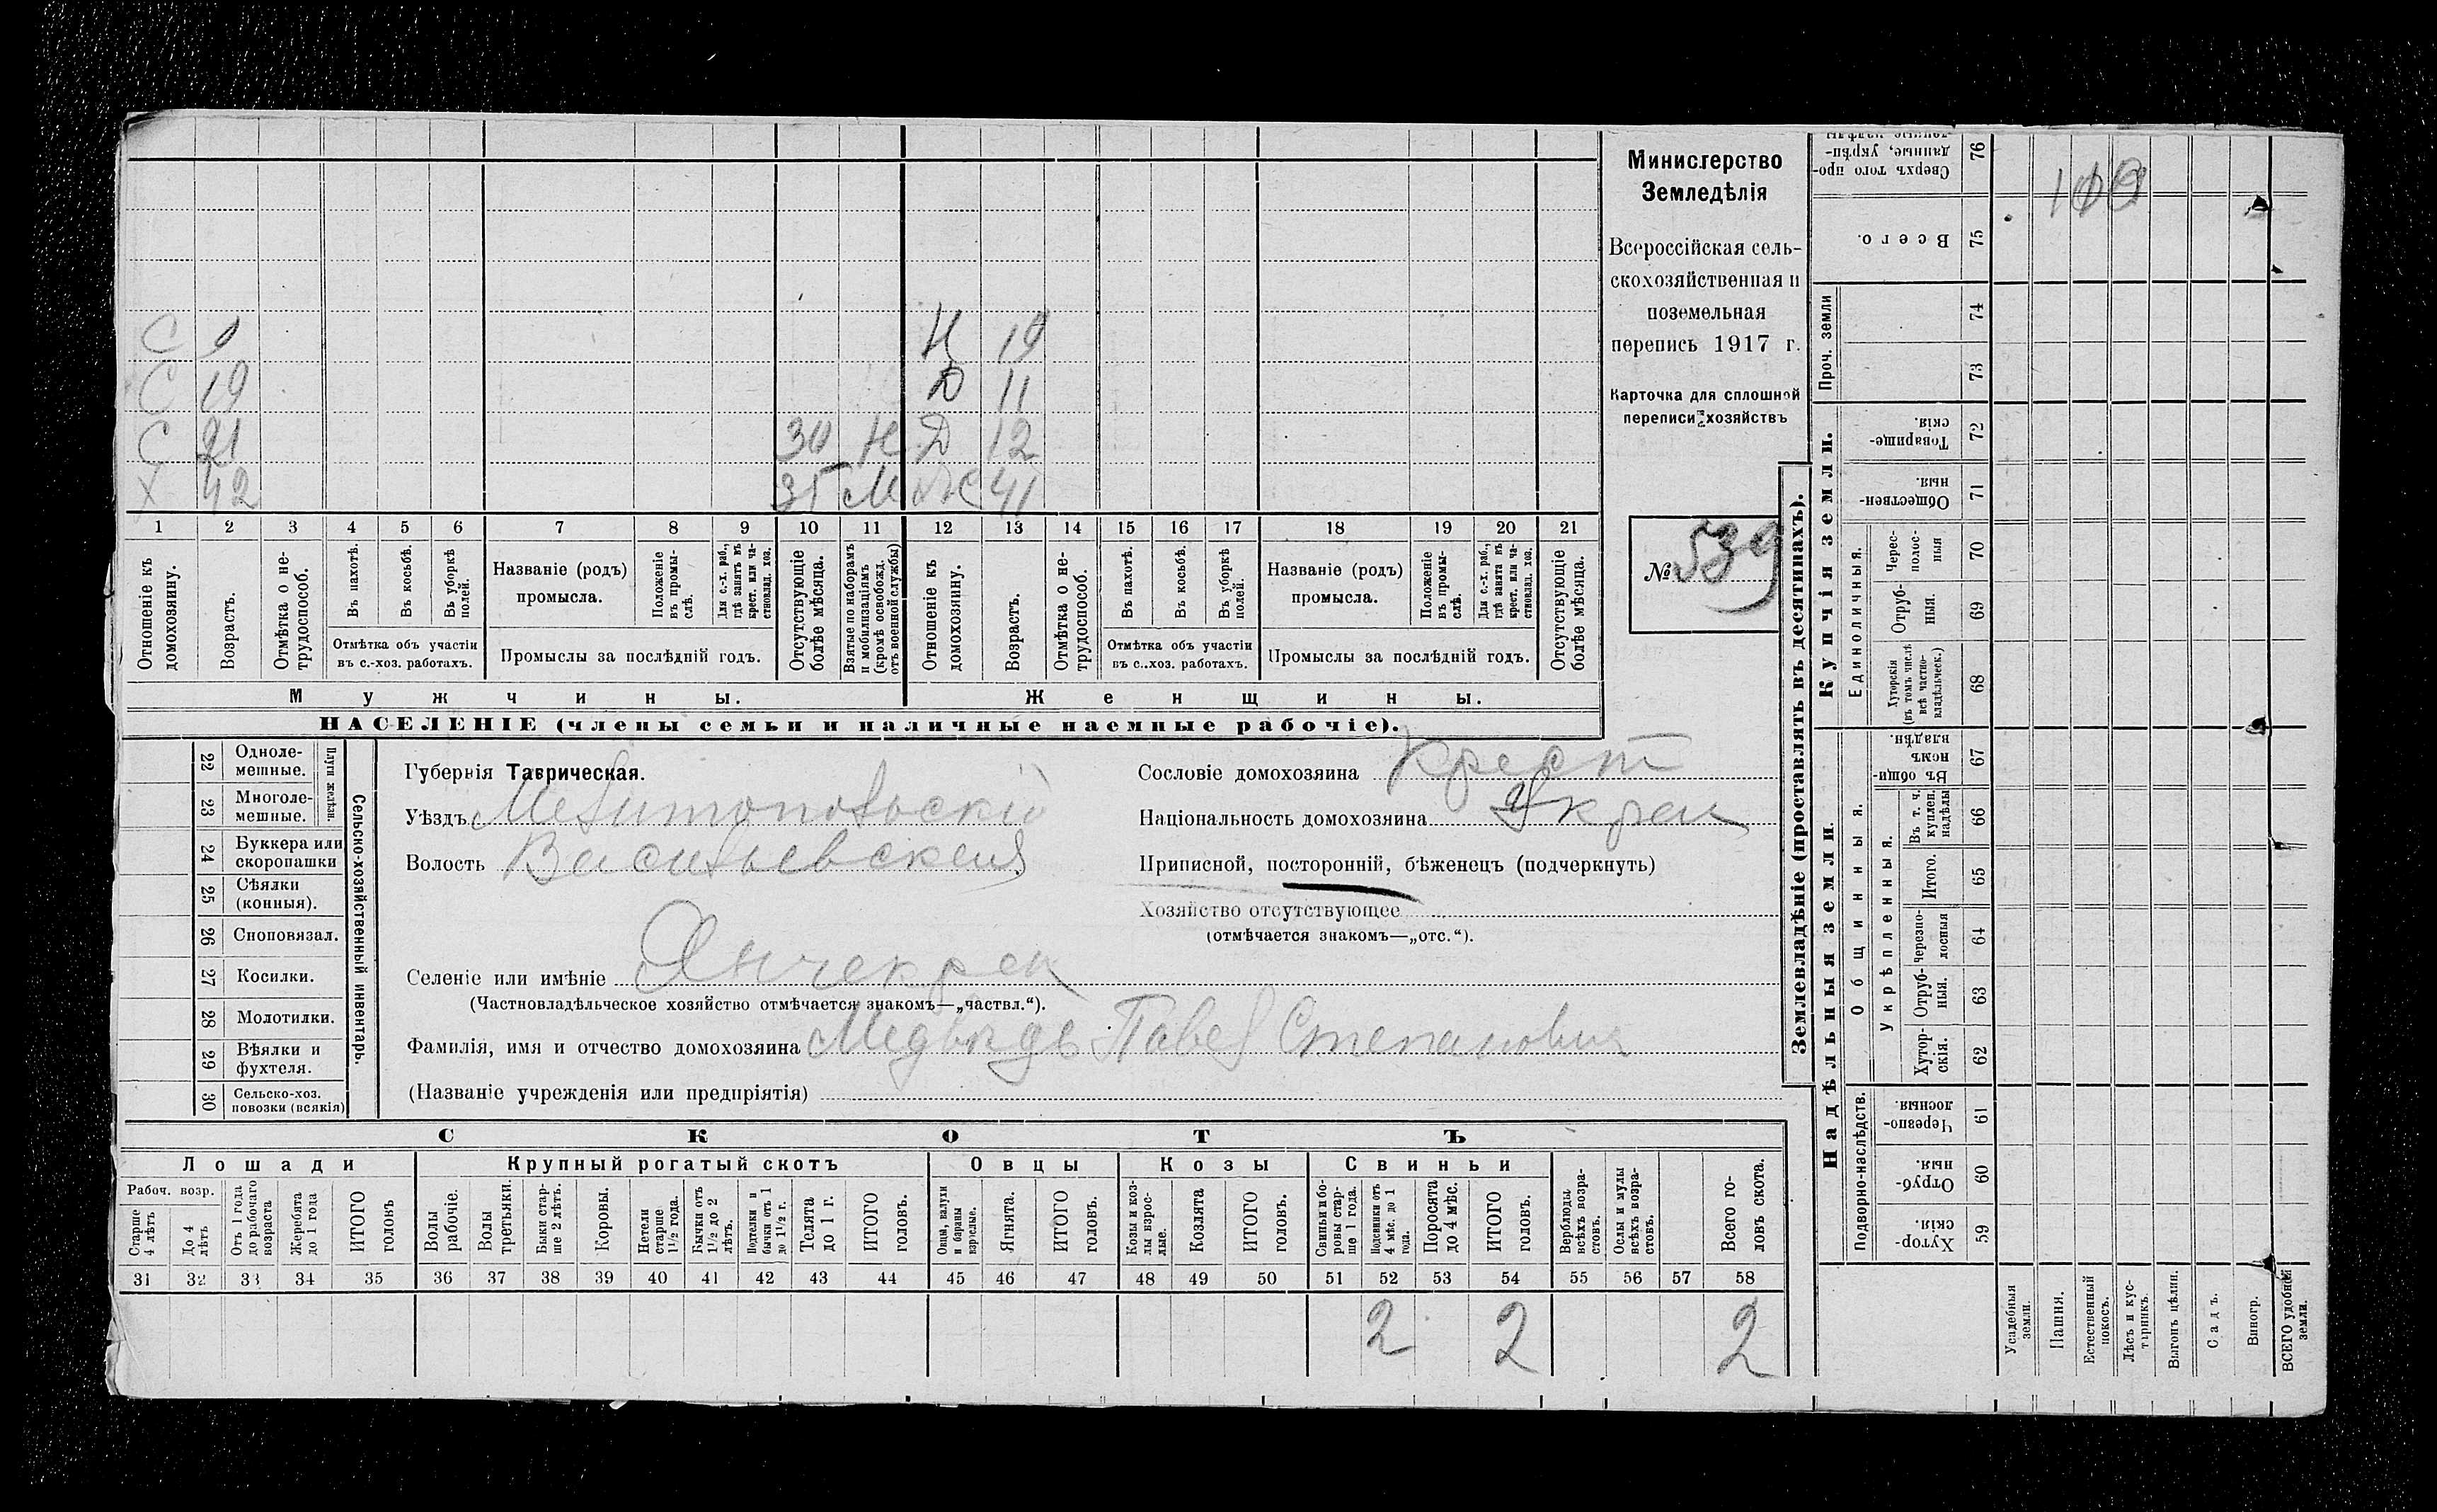 Министерство
Земледѣлія
Всероссійская сель-
скохозяйственная и
поземельная
перепись 1917 г.
Карточка для сплошной
переписи хозяйствъ
№ 539
С 9 19
С 19 Д 11
С 21 30 Н Д 12
Х 42 35 М Ж 41
1 2 3 4 5 6 7 8 9 10 11 12 13 14 15 16 17 18 19 20 21
Отношеніе къ домохозяину.
Возрастъ.
Отмѣтка о не-трудоспособ.
Въ пахотѣ.
Въ косьбѣ.
Въ уборкѣ полей.
Отмѣтка объ участіи
въ с.-хоз. работахъ.
Названіе (родъ)
промысла.
Положеніе въ промы-слѣ.
Для с.-х. раб., гдѣ занятъ въ крест. или ча-ствовлад. хоз.
Промыслы за послѣдній годъ.
Отсутствующіе болѣе мѣсяца.
Взятые по наборамъ и мобилизаціямъ (кромѣ освобожд. отъ военной службы)
Отношеніе къ домохозяину.
Возрастъ.
Отмѣтка о не-трудоспособ.
Въ пахотѣ.
Въ косьбѣ.
Въ уборкѣ полей.
Отмѣтка объ участіи
въ с..хоз. работахъ.
Названіе (родъ)
промысла.
Положеніе въ промы-слѣ.
Для с.-х. раб., гдѣ занята въ крест. или ча-ствовлад. хоз.
Промыслы за послѣдній годъ.
Отсутствующіе болѣе мѣсяца.
Мужчины. Женщины.
НАСЕЛЕНІЕ (члены семьи и наличные наемные рабочіе).
22 Одноле-мешные.
23 Многоле-мешные.
Плуги желѣзн.
24 Буккера или скоропашки
25 Сѣялки (конныя).
26 Сноповязал.
27 Косилки.
28 Молотилки.
29 Вѣялки и фухтеля.
30 Сельско-хоз. повозки (всякія)
Сельско-хозяйственный инвентарь.
Губернія Таврическая.
Уѣздъ Мелитопольскій
Волость Васильевская
Сословіе домохозяина Крест
Національность домохозяина Украи
Приписной, посторонній, бѣженецъ (подчеркнуть)
Хозяйство отсутствующее
(отмѣчается знакомъ—„отс.“).
Селеніе или имѣніе Янчекрак
(Частновладѣльческое хозяйство отмѣчается знакомъ—„частвл.“).
Фамилія, имя и отчество домохозяина Медвѣдь Павел Степанович
(Названіе учрежденія или предпріятія)
СКОТЪ
Лошади Крупный рогатый скотъ Овцы Козы Свиньи
Рабоч. возр.
Старше 4 лѣтъ
До 4 лѣтъ
Отъ 1 года до рабочаго возраста
Жеребята до 1 года
ИТОГО головъ
Волы рабочіе.
Волы третьяки.
Быки стар-ше 2 лѣтъ.
Коровы.
Нетели старше 1½ года.
Бычки отъ 1½ до 2 лѣтъ.
Подтелки и бычки отъ 1 до 1½ г.
Телята до 1 г.
ИТОГО головъ.
Овцы, валухи и бараны взрослые.
Ягнята.
ИТОГО головъ.
Козы и коз-лы взрос-лые.
Козлята
ИТОГО головъ.
Свиньи и бо-ровы стар-ше 1 года.
Подсвинки отъ 4 мѣс. до 1 года.
Поросята до 4 мѣс.
ИТОГО головъ.
Верблюды всѣхъ возра-стовъ.
Ослы и мулы всѣхъ возра-стовъ.
Всего го-ловъ скота.
31 32 33 34 35 36 37 38 39 40 41 42 43 44 45 46 47 48 49 50 51 52 53 54 55 56 57 58
2 2 2
Землевладѣніе (проставлять въ десятинахъ).
Купчія земли.
Надѣльныя земли.
76 Сверхъ того про-данные, укрѣп-
75 Всего.
Проч. земли
74
73
72 Товарище-скія.
71 Обществен-ныя.
Единоличныя.
70 Черес-полос-ныя
69 Отруб-ныя.
68 Хуторскія (въ томъ числѣ всѣ частно-владѣльческ.)
Общинныя.
67 Въ общи-номъ владѣн.
Укрѣпленныя.
66 Въ т. ч. куплен. надѣлы
65 Итого.
64 Черезпо-лосныя
63 Отруб-ныя.
62 Хутор-скія.
Подворно-наслѣдств.
61 Черезпо-лосныя.
60 Отруб-ныя.
59 Хутор-скія.
Усадебныя земли.
Пашня.
Естественный покосъ.
Лѣсъ и кус-тарникъ.
Выгонъ цѣлин.
Садъ.
Виногр.
ВСЕГО удобной земли.